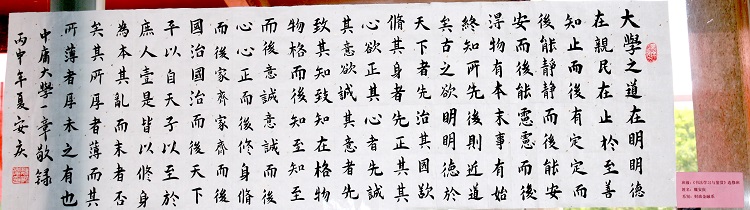 大學之道在明明德
在親民在止於至善
知止而后有定定而
後能靜靜而后能安
安而後能慮慮而後
得物有本末事有始
終知所先後則近道
矣古之欲明明德於
天下者先治其國欲
脩其身者先正其
心欲正其心者先誠
其意欲誠其意者先
致其知致知在格物
物格而后知至知至
而後意誠意誠而後
心心正而後
而後家齊家齊而後
國治國治而後天下
平以自天子以至於
庶人壹是皆以修身
為本其亂而末者否
矣其所厚者薄而其
所薄者厚未之有也
中庸大學一章敬錄
丙申年夏安庆